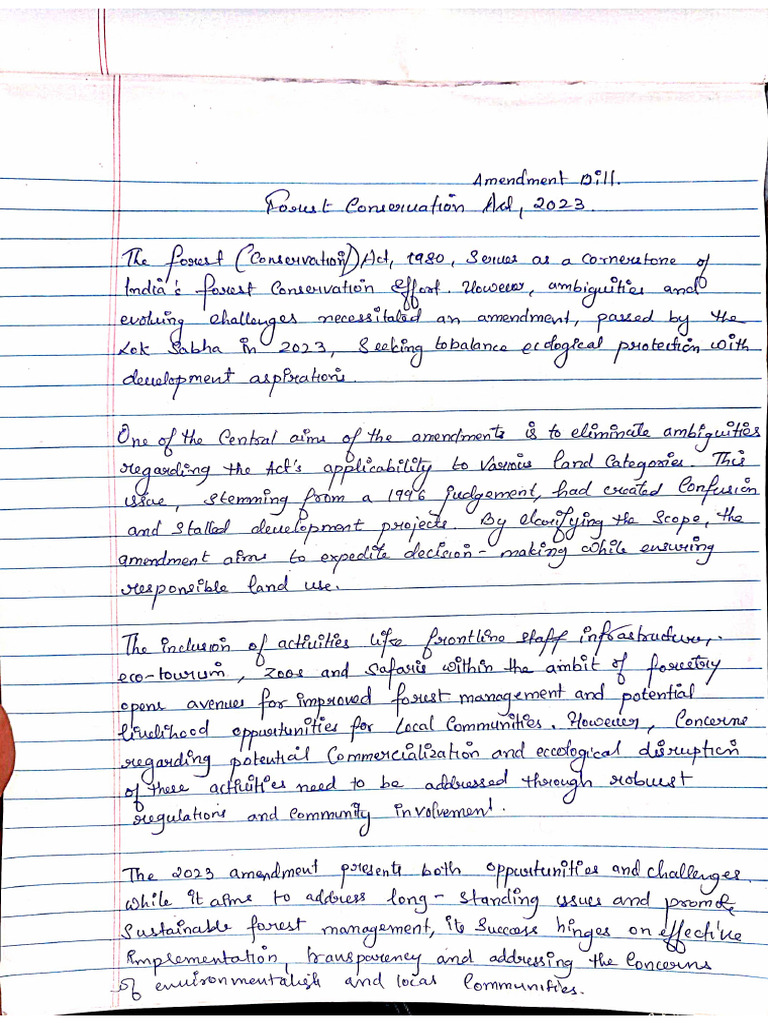 Amendment Bill.
Forest Conservation Act, 2023.
The forest (Conservation) Act, 1980, Serves as a cornerstone of
India's forest Conservation Effort. However, ambiguities and
evolving challenges necessitated an amendment, passed by the
Lok Sabha in 2023, Seeking to balance ecological protection with
development aspirations.
One of the Central aims of the amendments is to eliminate ambiguities
regarding the Act's applicability to Various land Categories. This
issue, stemming from a 1996 judgement, had created Confusion
and stalled development projects. By clarifying the Scope, the
amendment aims to expedite decision-making while ensuring
responsible land use.
The inclusion of activities like frontline staff infrastructure,
eco-tourism, zoos and Safaris within the ambit of forestory
opens avenues for improved forest management and potential
livelihood oppurtunities for Local Communities. However, Concerns
regarding potential Commercialization and eccological disruption
of these activities need to be addressed through robust
regulations and Community involvement.
The 2023 amendment presents both oppurtunities and challenges.
while it aims to address long-standing issues and promote
Sustainable forest management, its Success hinges on effective
Implementation, transparency and addressing the Concerns
of environmentalists and local Communities.